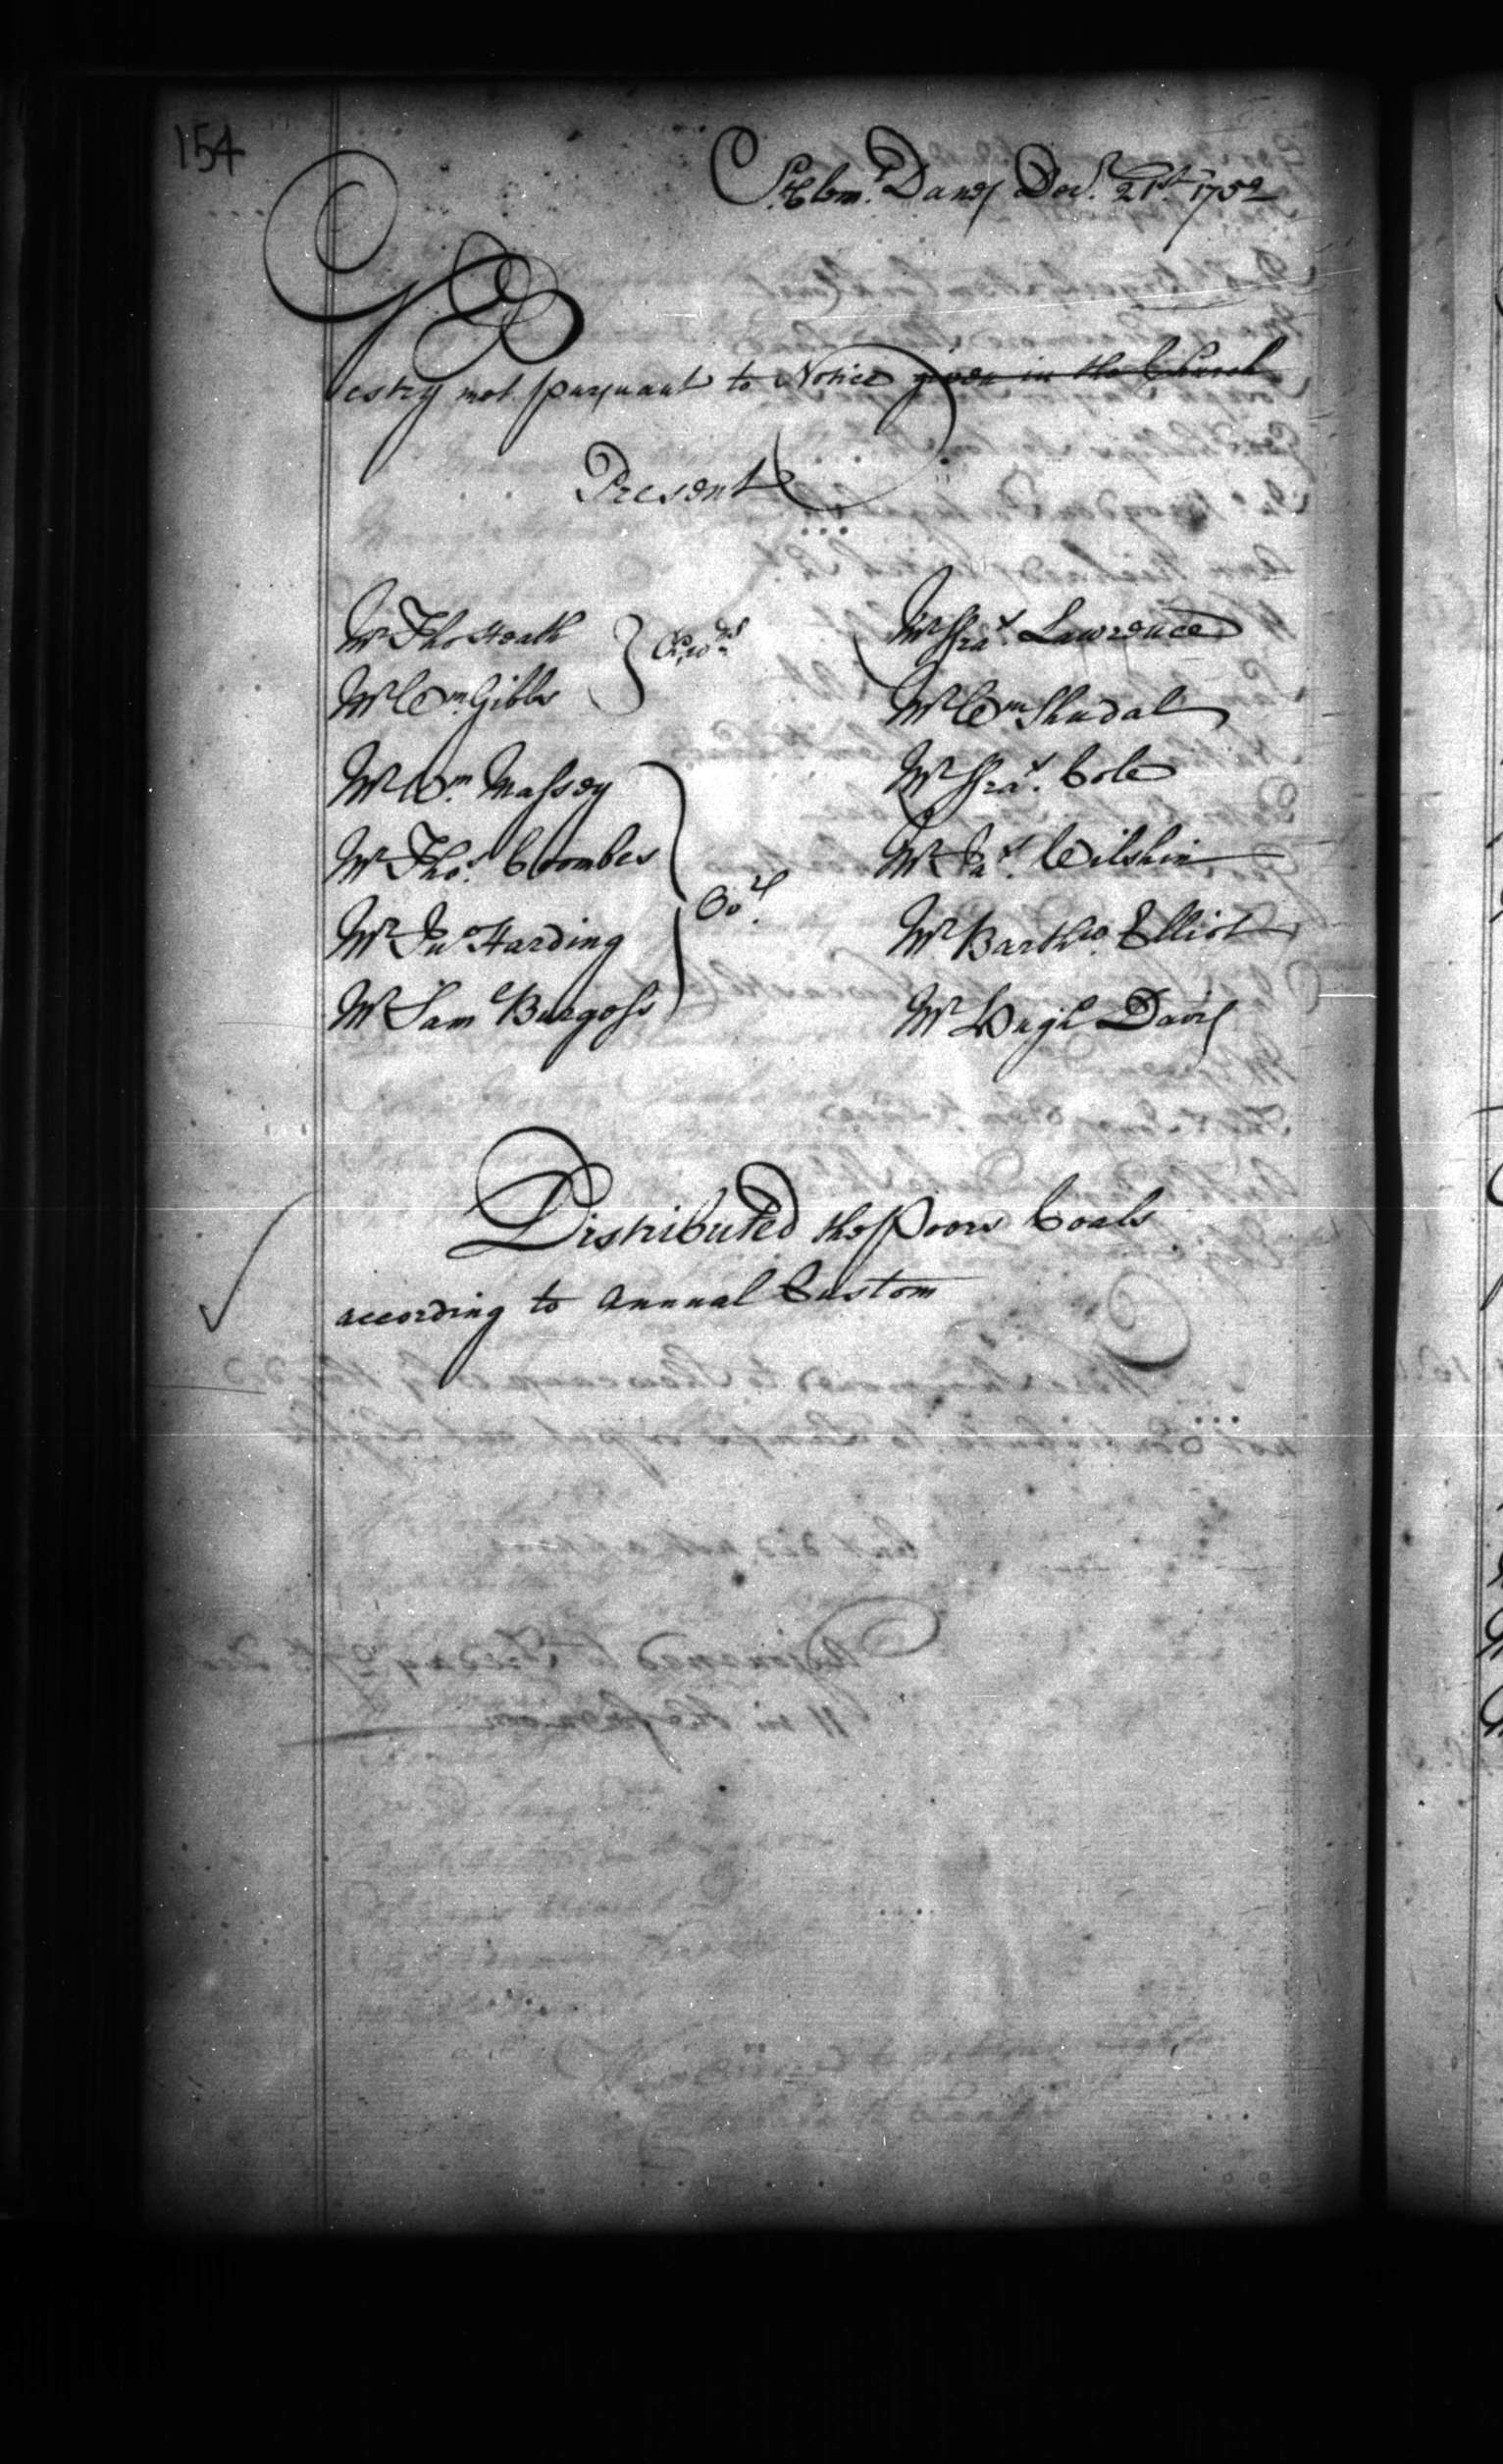 154
St. Clem.ts Danes Dec.r 21st 1752
Vestry met pursuant to Notice given in the Church
Present
Mr Tho Heath
Mr Wm Gibbs
Ch.wds
Mr Wm. Massey
Mr Thos. Coombes
Mr Jno Harding
Mr Saml Burgess
Ovrs.
Mr Fras. Lawrence
Mr Wm Shudal
Mr Fras. Cole
Mr Jas. Wilshin
Mr Bartho. Elliot
Mr Hugh Davis
Distributed the Poors Coals
according to Annual Custom